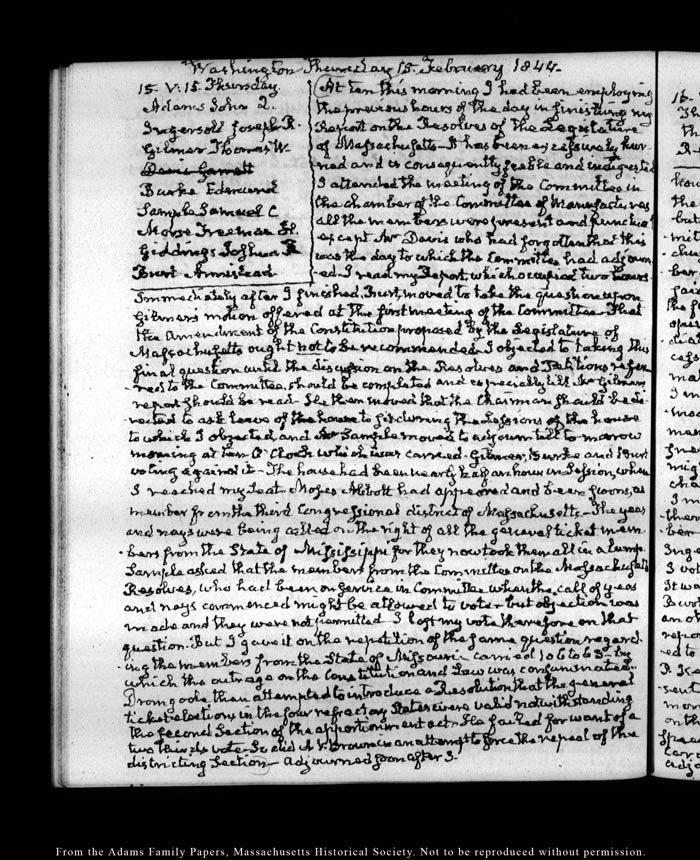 Washington Thursday 15. February 1844.
15. V:15. Thursday.
Adams John Q.
Ingersoll Joseph R.
Gilmer Thomas W.
Davis Garrett
Burke Edmund
Sample Samuel C
Morse Freeman H.
Giddings Joshua R
Burt Armistead
At ten this morning I had been employing
the previous hours of the day in finishing my
Report on the Resolves of the Legislature
of Massachusetts - It has been excessively hur-
ried and is consequently feeble and indigested
I attended the meeting of the Committee in
the chamber of the Committee of Manufactures
all the members were present and punctual
except Mr Davis who had forgotten that this
was the day to which the Committee had adjourn-
ed. I read my Report, which occupied two hours
Immediately after I finished, Burt, moved to take the question upon
Gilmer's motion offered at the first meeting of the Committee - That
the Amendment of the Constitution proposed by the Legislature of
Massachusetts ought not to be recommended. I objected to taking this
final question until the discussion on the Resolves and Petitions refer-
red to the Committee, should be completed and especially till Mr Gilmer's
report should be read - He then moved that the Chairman should be di-
rected to ask leave of the house to sit during the Sessions of the house
to which I objected, and Mr Sample moved to adjourn till to-morrow
morning at ten O'Clock which was carried - Gilmer, Burke and Burt
voting against it - The house had been nearly half an hour in Session, when
I reached my seat. Moses Abbott had appeared and been sworn, as
member from the third Congressional district of Massachusetts - The yeas
and nays were being called on the right of all the general ticket mem-
bers from the State of Mississippi for they now took them all in a lump.
Sample asked that the members from the Committee on the Massachusetts
Resolves, who had been on service in Committee when the call of yeas
and nays commenced might be allowed to vote - but objection was
made and they were not permitted I lost my vote therefore on that
question. But I gave it on the repetition of the same question regard-
ing the members from the State of Missouri carried 106 to 63 - by
which the outrage on the Constitution and Law was consummated.
Dromgoole then attempted to introduce a Resolution that the general
ticket elections in the four refractory States were valid notwithstanding
the second Section of the apportionment act - He failed for want of a
two thirds vote - So did A. V. Brown in an attempt to force the repeal of the
districting Section - Adjourned soon after 3.
From the Adams Family Papers, Massachusetts Historical Society. Not to be reproduced without permission.